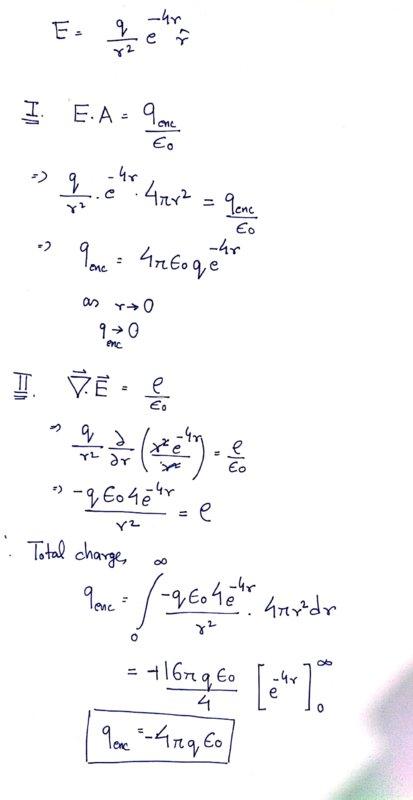 E = q/r² e^-4r r̂
I. E.A = q_enc/ε₀
=> q/r² . e^-4r . 4πr² = q_enc/ε₀
=> q_enc = 4πε₀qe^-4r
as r→0
q_enc→0
II. ∇⃗.E⃗ = ρ/ε₀
=> q/r² ∂/∂r (r²e^-4r/r²) = ρ/ε₀
=> -qε₀4e^-4r/r² = ρ
∴ Total charge,
q_enc = ∫₀^∞ -qε₀4e^-4r/r² . 4πr²dr
= +16πqε₀/4 [e^-4r]₀^∞
q_enc = -4πqε₀